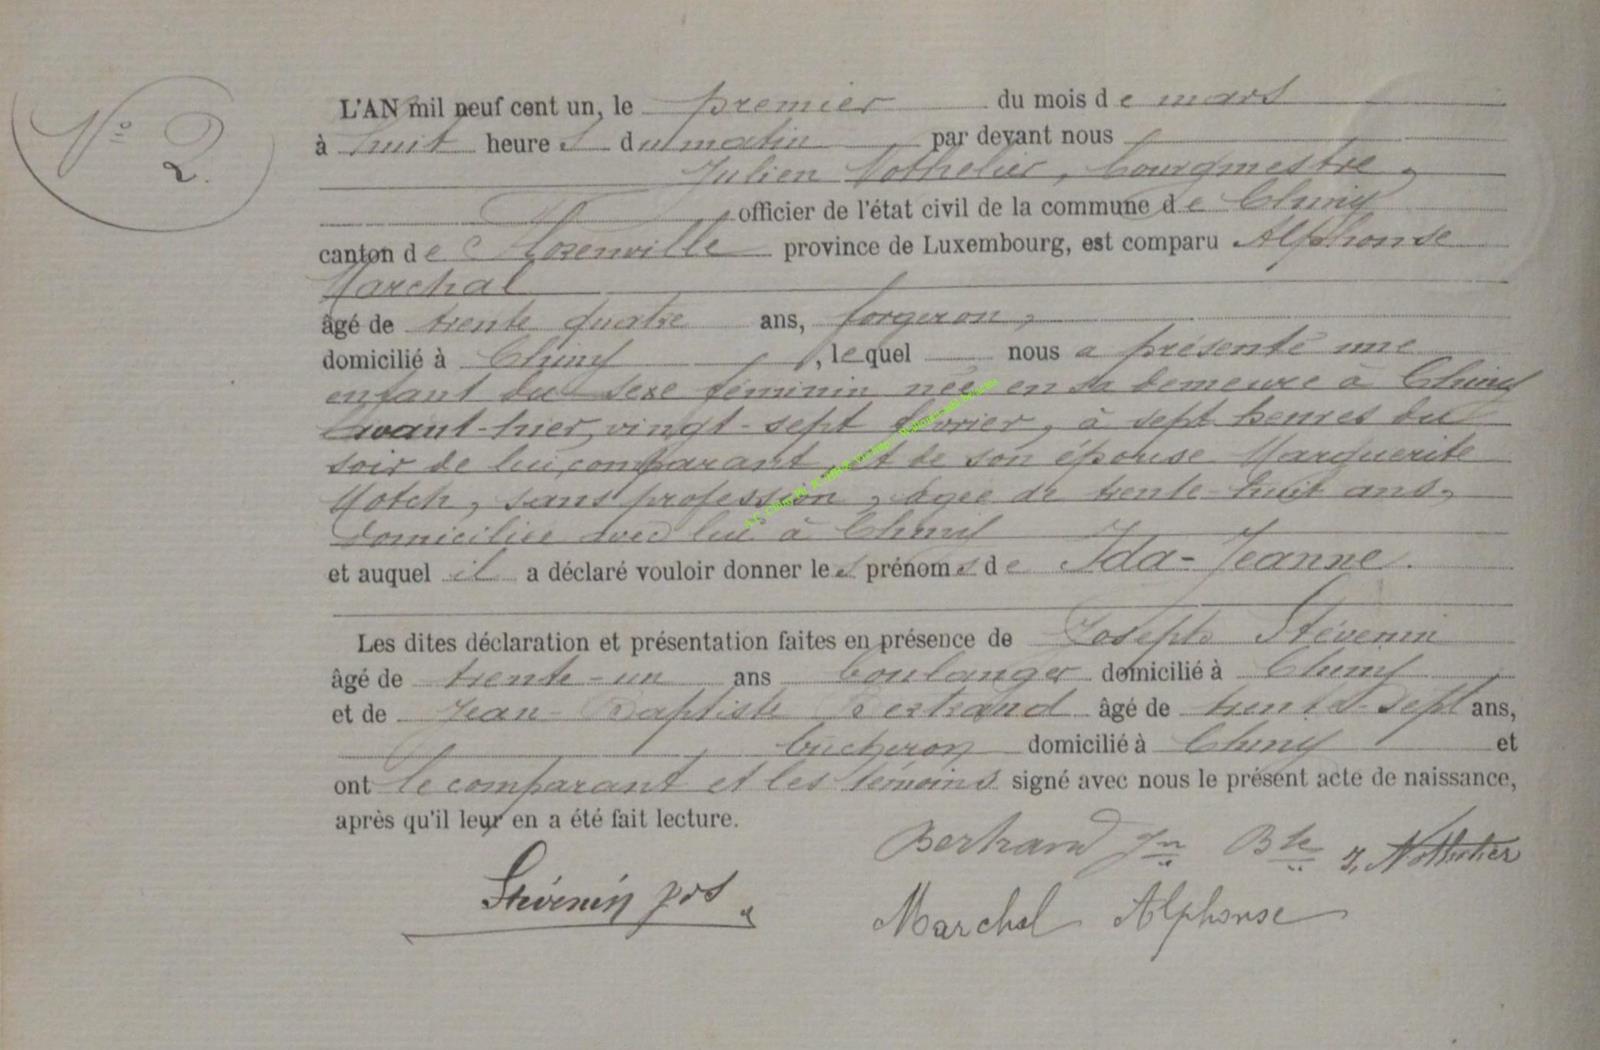 N° 2.
L'AN mil neuf cent un, le premier du mois de mars
à huit heures du matin par devant nous
Julien Nothelier, bourgmestre,
officier de l'état civil de la commune de Chiny
canton de Florenville province de Luxembourg, est comparu Alphonse
Marchal
âgé de trente quatre ans, forgeron,
domicilié à Chiny, lequel nous a présenté une
enfant du sexe féminin née en sa demeure à Chiny
avant-hier, vingt-sept février, à sept heures du
soir de lui, comparant, et de son épouse Marguerite
Motch, sans profession, âgée de trente-huit ans,
domiciliée avec lui à Chiny
et auquel il a déclaré vouloir donner les prénoms de Ida-Jeanne.
Les dites déclaration et présentation faites en présence de Joseph Stévenin
âgé de trente-un ans boulanger domicilié à Chiny
et de Jean-Baptiste Bertrand âgé de trente-sept ans,
bûcheron domicilié à Chiny et
ont le comparant et les témoins signé avec nous le présent acte de naissance,
après qu'il leur en a été fait lecture.
Bertrand Jn Bte J. Nothelier
Stévenin jos
Marchal Alphonse